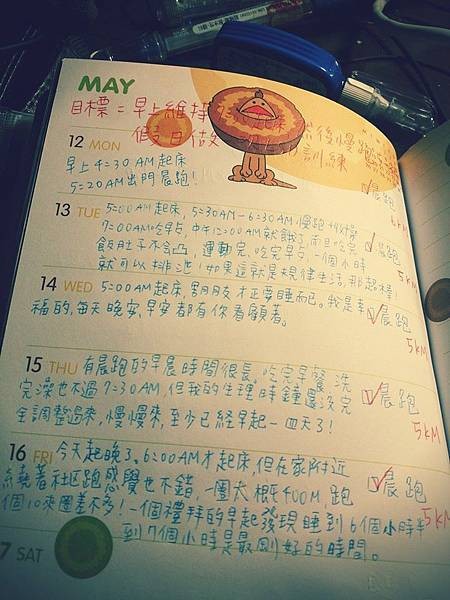 MAY
目標=早上維持
然後慢跑
假日做
訓練
12 MON
早上4:30 AM起床
5:20AM出門晨跑!
晨跑
6KM
13 TUE
5:00AM起床, 5:30AM-6:30AM 慢跑
7:00AM吃早点, 中午12:00AM就餓了, 而且吃完
飯肚子不會凸, 運動完、吃完早点, 一個小時
就可以排泄! 如果這就是規律生活, 那超棒!
晨跑
5KM
14 WED
5:00AM起床, 男朋友才正要睡而已。我是幸
福的, 每天晚安、早安都有你看顧著。
晨跑
5KM
15 THU
有晨跑的早晨時間很長, 吃完早餐、洗
完澡也不過7:30AM, 但我的生理時鐘還沒完
全調整過來, 慢慢來, 至少已經早起一四天了!
晨跑
5KM
16 FRI
今天起晚了, 6:00AM才起床, 但在家附近
繞著社區跑感覺也不錯, 一圈大概400M, 跑
個10來圈差不多! 一個禮拜的早起發現睡到6個小時半
到7個小時是最剛好的時間。
晨跑
5KM
7 SAT